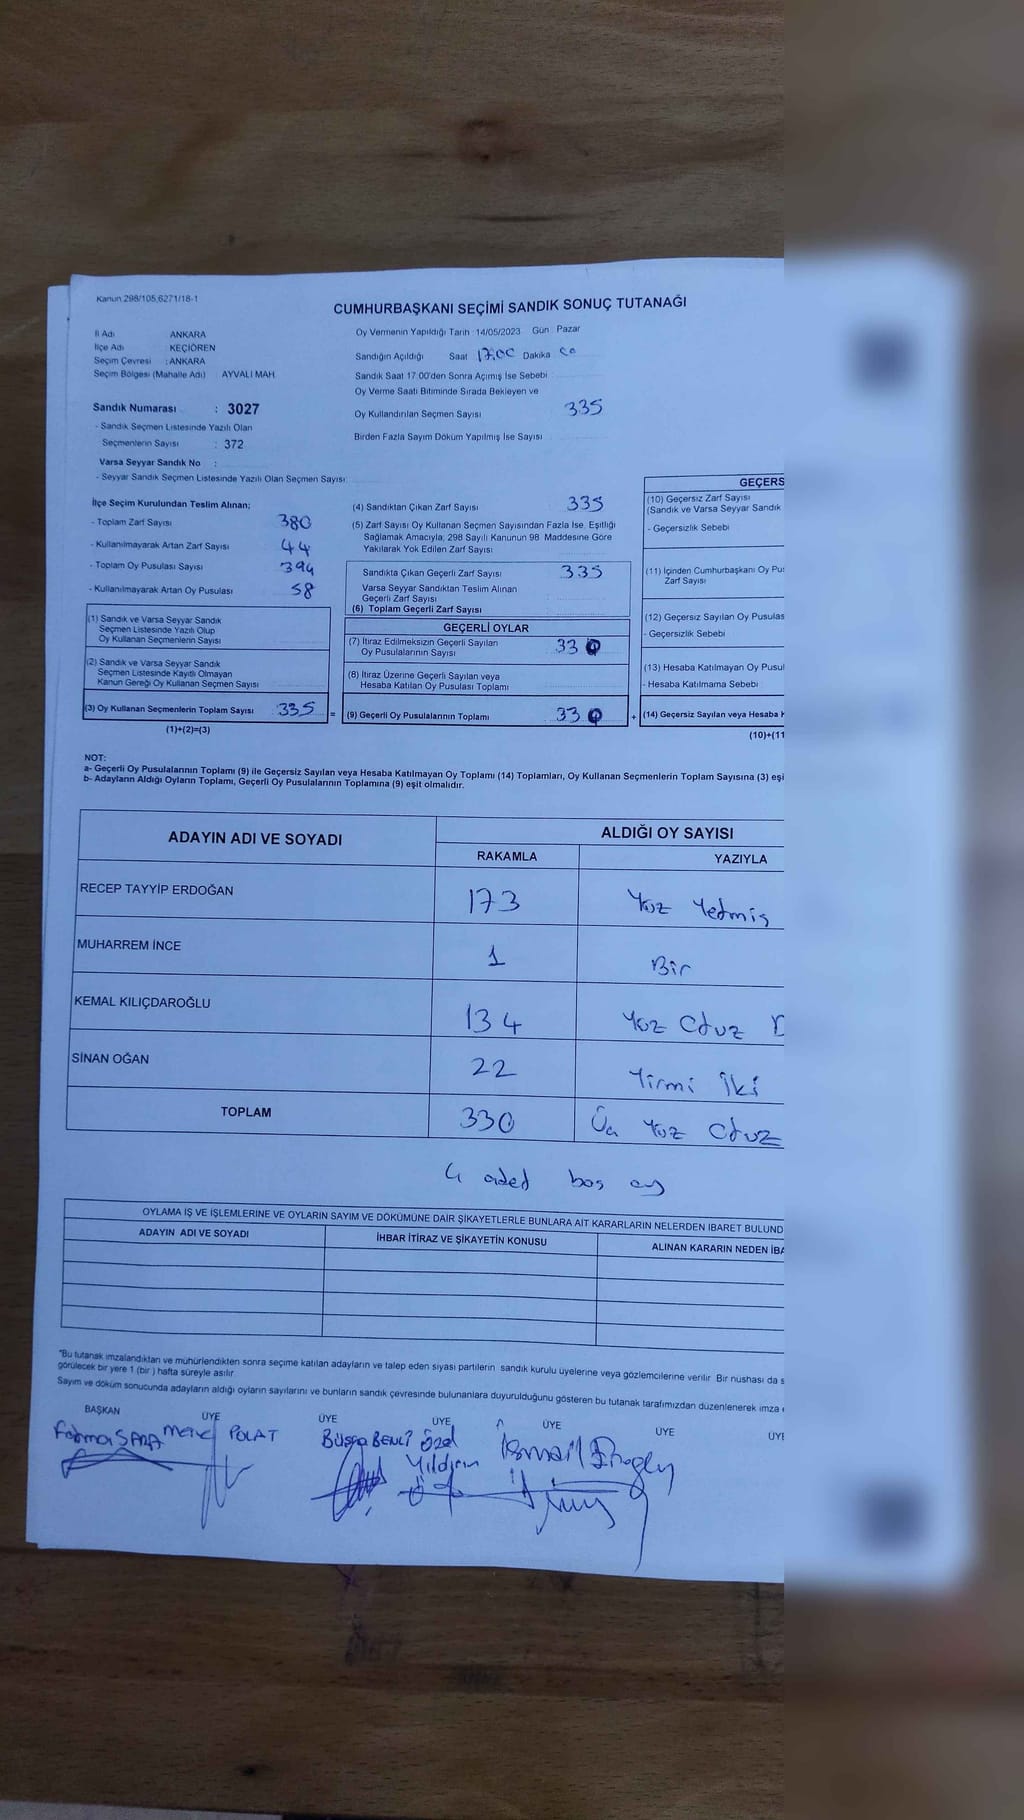 Kanun 298/105,6271/18-1
CUMHURBAŞKANI SEÇİMİ SANDIK SONUÇ TUTANAĞI
İl Adı ANKARA
İlçe Adı KEÇİÖREN
Seçim Çevresi : ANKARA
Seçim Bölgesi (Mahalle Adı) : AYVALI MAH.
Sandık Numarası : 3027
- Sandık Seçmen Listesinde Yazılı Olan
Seçmenlerin Sayısı : 372
Varsa Seyyar Sandık No :
- Seyyar Sandık Seçmen Listesinde Yazılı Olan Seçmen Sayısı:
Oy Vermenin Yapıldığı Tarih : 14/05/2023 Gün Pazar
Sandığın Açıldığı Saat 17.00 Dakika 00
Sandık Saat 17:00'den Sonra Açmış İse Sebebi
Oy Verme Saati Bitiminde Sırada Bekleyen ve
Oy Kullandırılan Seçmen Sayısı 335
Birden Fazla Sayım Döküm Yapılmış İse Sayısı
İlçe Seçim Kurulundan Teslim Alınan;
- Toplam Zarf Sayısı 380
- Kullanılmayarak Artan Zarf Sayısı 44
- Toplam Oy Pusulası Sayısı 394
- Kullanılmayarak Artan Oy Pusulası 58
(1) Sandık ve Varsa Seyyar Sandık
Seçmen Listesinde Yazılı Olup
Oy Kullanan Seçmenlerin Sayısı
(2) Sandık ve Varsa Seyyar Sandık
Seçmen Listesinde Kayıtlı Olmayan
Kanun Gereği Oy Kullanan Seçmen Sayısı
(3) Oy Kullanan Seçmenlerin Toplam Sayısı 335 =
(1)+(2)=(3)
(4) Sandıktan Çıkan Zarf Sayısı 335
(5) Zarf Sayısı Oy Kullanan Seçmen Sayısından Fazla İse, Eşitliği
Sağlamak Amacıyla; 298 Sayılı Kanunun 98. Maddesine Göre
Yakılarak Yok Edilen Zarf Sayısı
Sandıkta Çıkan Geçerli Zarf Sayısı 335
Varsa Seyyar Sandıktan Teslim Alınan
Geçerli Zarf Sayısı
(6) Toplam Geçerli Zarf Sayısı
GEÇERLİ OYLAR
(7) İtiraz Edilmeksizin Geçerli Sayılan
Oy Pusulalarının Sayısı 330
(8) İtiraz Üzerine Geçerli Sayılan veya
Hesaba Katılan Oy Pusulası Toplamı
(9) Geçerli Oy Pusulalarının Toplamı 330 +
GEÇERS
(10) Geçersiz Zarf Sayısı
(Sandık ve Varsa Seyyar Sandık
- Geçersizlik Sebebi
(11) İçinden Cumhurbaşkanı Oy Pu
Zarf Sayısı
(12) Geçersiz Sayılan Oy Pusulas
- Geçersizlik Sebebi
(13) Hesaba Katılmayan Oy Pusul
- Hesaba Katılmama Sebebi
(14) Geçersiz Sayılan veya Hesaba K
(10)+(11
NOT:
a- Geçerli Oy Pusulalarının Toplamı (9) ile Geçersiz Sayılan veya Hesaba Katılmayan Oy Toplamı (14) Toplamları, Oy Kullanan Seçmenlerin Toplam Sayısına (3) eşi
b- Adayların Aldığı Oyların Toplamı, Geçerli Oy Pusulalarının Toplamına (9) eşit olmalıdır.
ADAYIN ADI VE SOYADI ALDIĞI OY SAYISI
RAKAMLA YAZIYLA
RECEP TAYYİP ERDOĞAN 173 Yüz Yetmiş
MUHARREM İNCE 1 Bir
KEMAL KILIÇDAROĞLU 134 Yüz Otuz D
SİNAN OĞAN 22 Yirmi İki
TOPLAM 330 Üç Yüz Otuz
4 aded boş oy
OYLAMA İŞ VE İŞLEMLERİNE VE OYLARIN SAYIM VE DÖKÜMÜNE DAİR ŞİKAYETLERLE BUNLARA AİT KARARLARIN NELERDEN İBARET BULUND
ADAYIN ADI VE SOYADI İHBAR İTİRAZ VE ŞİKAYETİN KONUSU ALINAN KARARIN NEDEN İBA
"Bu tutanak imzalandıktan ve mühürlendikten sonra seçime katılan adayların ve talep eden siyası partilerin sandık kurulu üyelerine veya gözlemcilerine verilir. Bir nüshası da s
görülecek bir yere 1 (bir) hafta süreyle asılır
Sayım ve döküm sonucunda adayların aldığı oyların sayılarını ve bunların sandık çevresinde bulunanlara duyurulduğunu gösteren bu tutanak tarafımızdan düzenlenerek imza
BAŞKAN ÜYE ÜYE ÜYE ÜYE ÜYE ÜYE
POLAT Büşra BENLİ Özel İsmail
Yıldırım